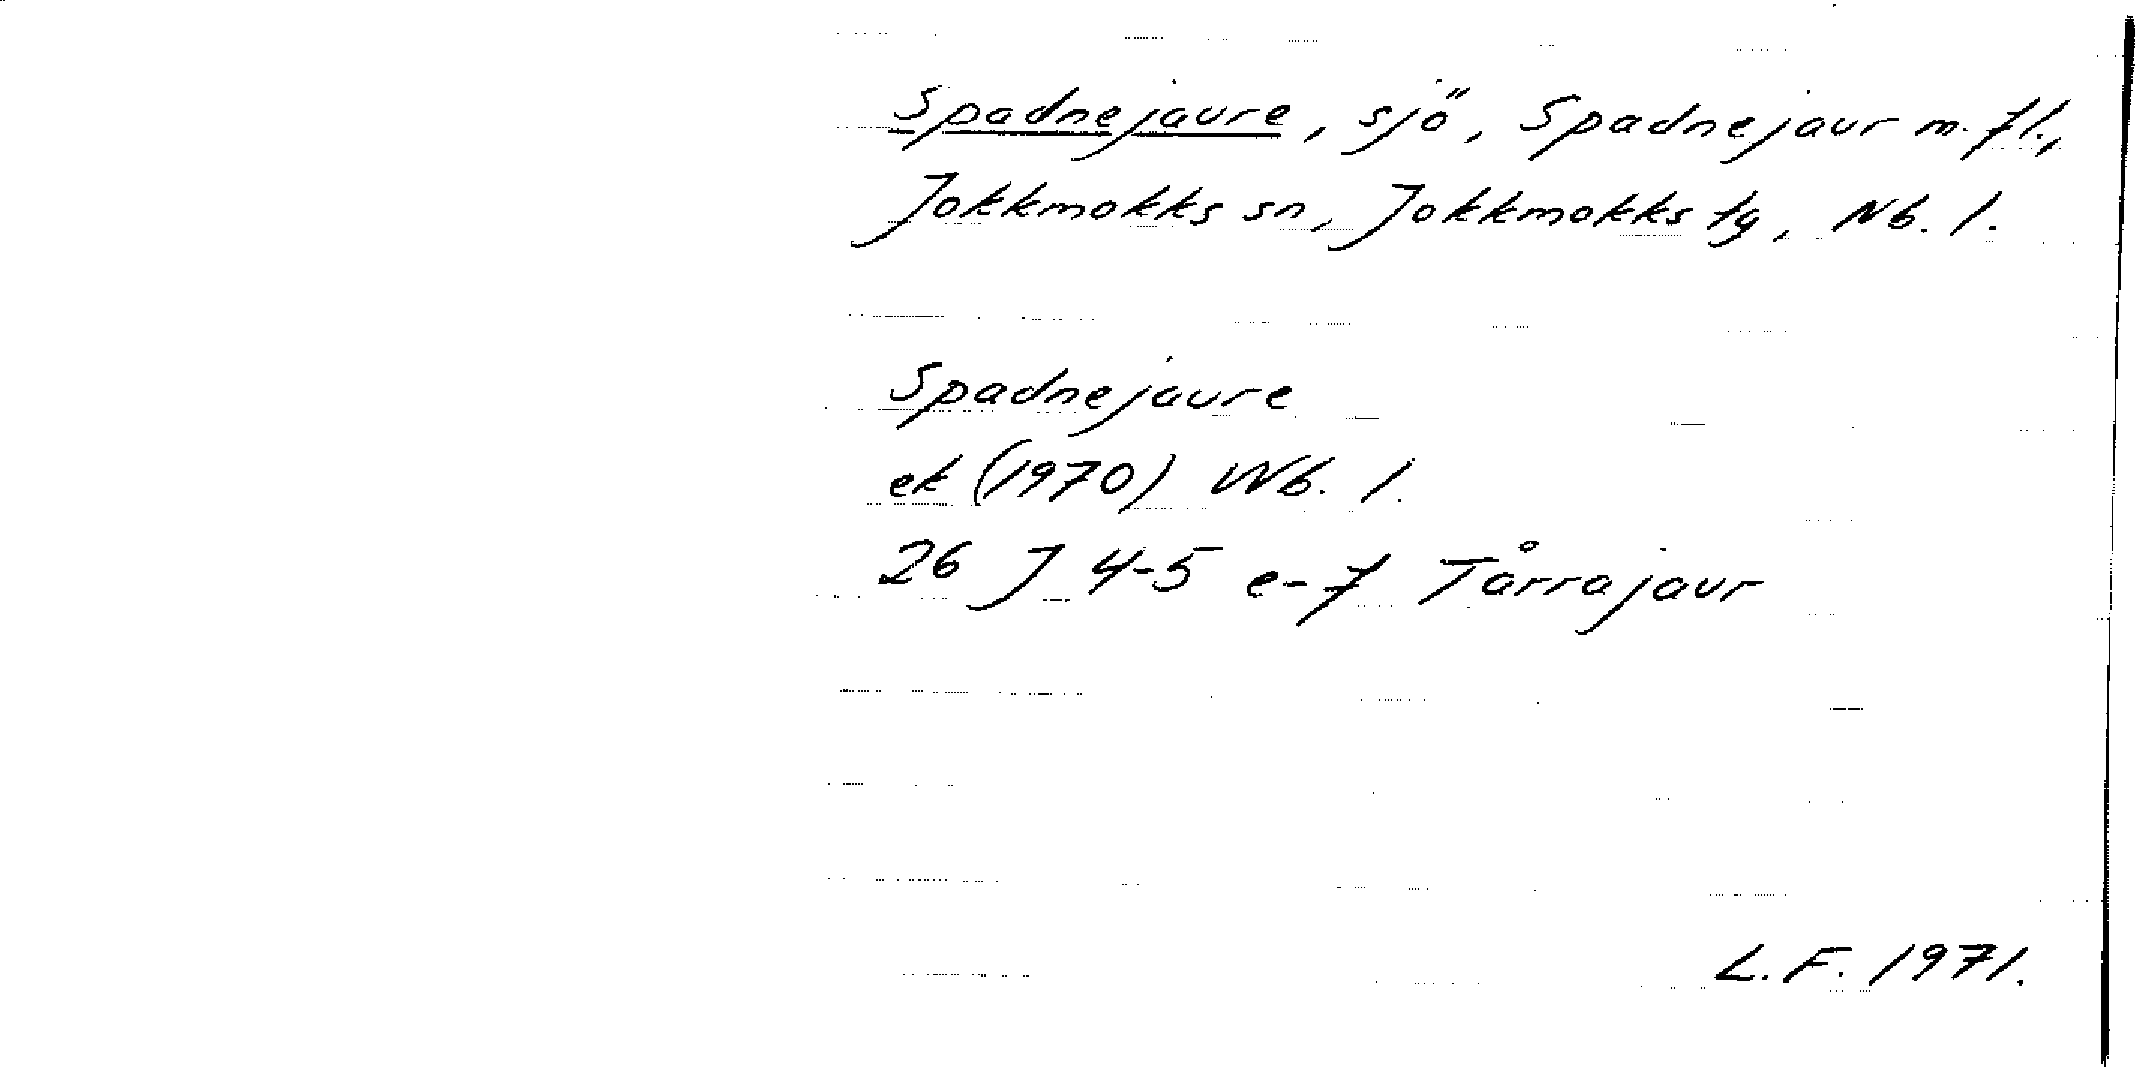 Spadnejaure, sjö, Spadnejaur m. fl.,
Jokkmokks sn, Jokkmokks tg, Nb. l.
Spadnejaure
ek (1970) Nb. l.
26 J 4-5 e-f Tårrajaur
L. F. 1971.